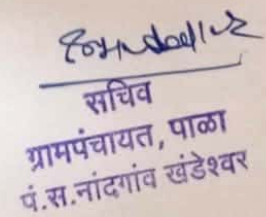 सचिव
ग्रामपंचायत, पाळा
पं.स.नांदगांव खंडेश्वर